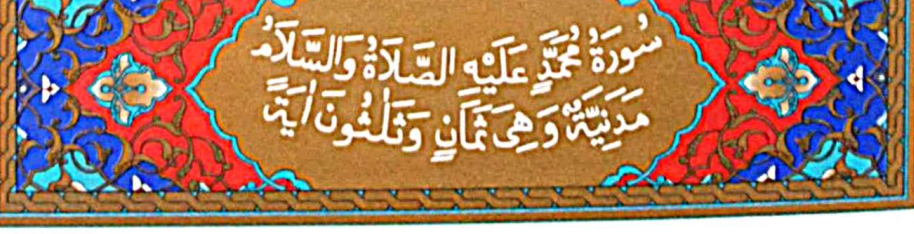 سُورَةُ مُحَمَّدٍ عَلَيْهِ الصَّلَاةُ وَالسَّلَامُ
مَدَنِيَّةٌ وَهِىَ ثَمَانٍ وَثَلٰثُونَ اٰيَةً